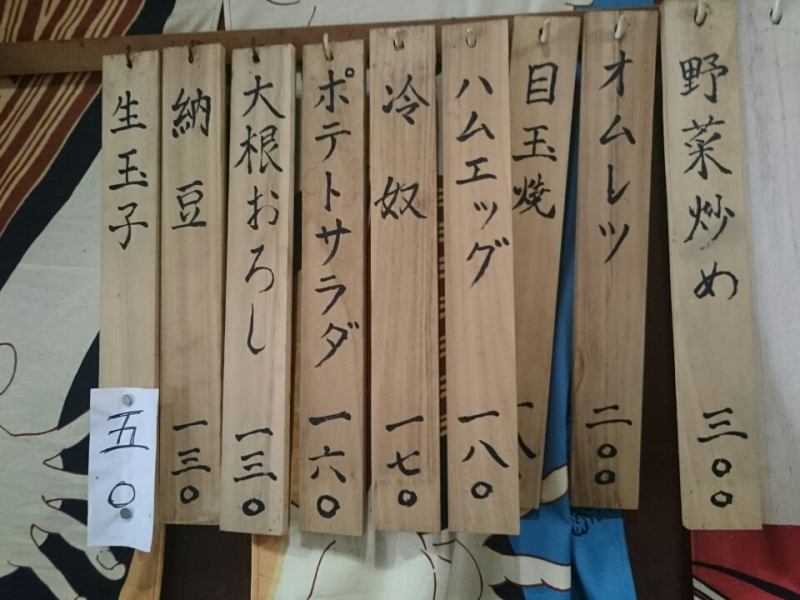 野菜炒め 三〇〇
オムレツ 二〇〇
目玉焼 一八
ハムエッグ 一八〇
冷奴 一七〇
ポテトサラダ 一六〇
大根おろし 一三〇
納豆 一三〇
生玉子 五〇